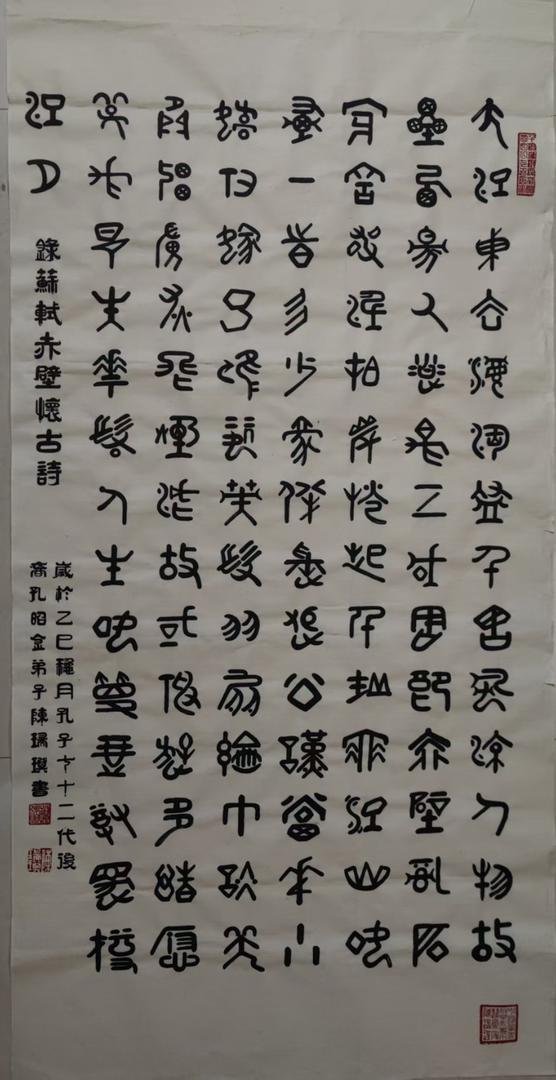 大江東去浪淘盡千古風流人物故
壘西邊人道是三國周郎赤壁亂石
穿空驚濤拍岸捲起千堆雪江山如
畫一時多少豪傑遙想公瑾當年小
喬初嫁了雄姿英發羽扇綸巾談笑
間強虜灰飛煙滅故國神遊多情應
笑我早生華髮人生如夢壹尊還酹
江月
錄蘇軾赤壁懷古詩
歲於乙巳月孔子七十二代後
裔孔昭金弟子陳瑞書